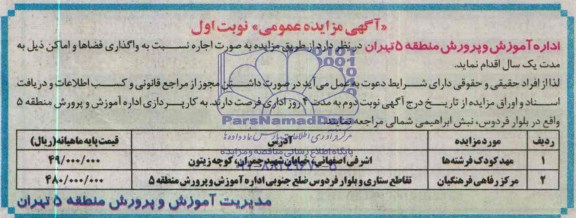 «آگهی مزایده عمومی» نوبت اول
اداره آموزش و پرورش منطقه ۵ تهران در نظر دارد از طریق مزایده به صورت اجاره نسبت به واگذاری فضاها و اماکن ذیل به
مدت یک سال اقدام نماید.
لذا از افراد حقیقی و حقوقی دارای شرایط دعوت به عمل می‌آید در صورت داشتن مجوز از مراجع قانونی و کسب اطلاعات و دریافت
اسناد و اوراق مزایده از تاریخ درج آگهی نوبت دوم به مدت ۴ روز اداری فرصت دارند. به کارپردازی اداره آموزش و پرورش منطقه ۵
واقع در بلوار فردوس، نبش ابراهیمی شمالی مراجعه نمایند.
ParsNamadData
پایگاه اطلاع رسانی مناقصه و مزایده
ردیف مورد مزایده آدرس قیمت پایه ماهیانه (ریال)
۱ مهد کودک فرشته‌ها اشرفی اصفهانی، خیابان شهید حمیران، کوچه زیتون ۴۹/۰۰۰/۰۰۰
۲ مرکز رفاهی فرهنگیان تقاطع ستاری و بلوار فردوس ضلع جنوبی اداره آموزش و پرورش منطقه ۵ ۴۸۰/۰۰۰/۰۰۰
مدیریت آموزش و پرورش منطقه ۵ تهران